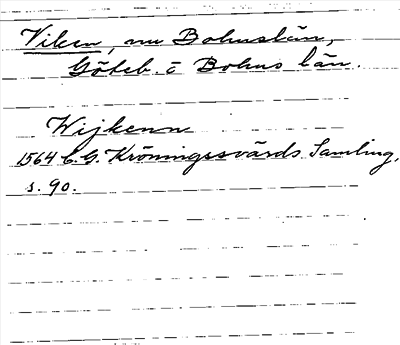 Viken, nu Bohuslän,
Göteb. o Bohus län.
Wijkenn
1564 C.G. Kröningssvärds Samling,
s. 90.